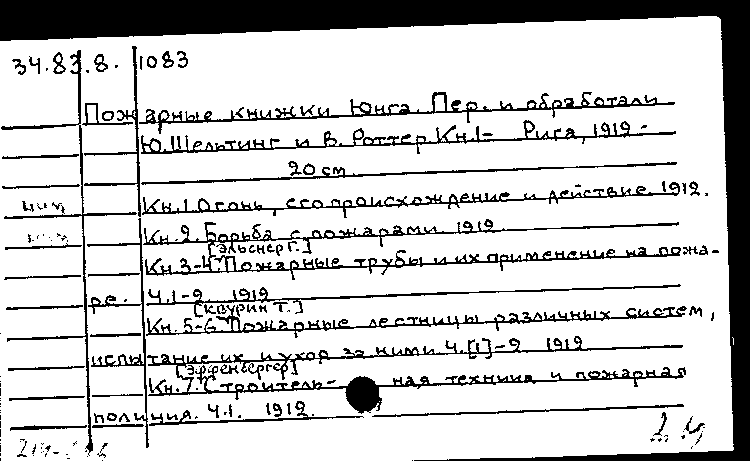 34.83.8. 1083
Пожарные книжки Юнга. Пер. и обработали
Ю. Шельтинг и В. Роттер. Кн.1- Рига, 1912-
20 см.
Кн.1. Огонь, его происхождение и действие. 1912.
Кн.2. Борьба с пожарами. 1912
[Эльснер Г.]
Кн.3-4. Пожарные трубы и их применение на пожа-
ре. Ч.1-2. 1912
[Квурин Т.]
Кн.5-6. Пожарные лестницы различных систем,
испытание их и уход за ними Ч.[1]-2 1912
[Эффенбергер]
Кн.7. Строитель- ная техника и пожарная
полиция. Ч.1. 1912.